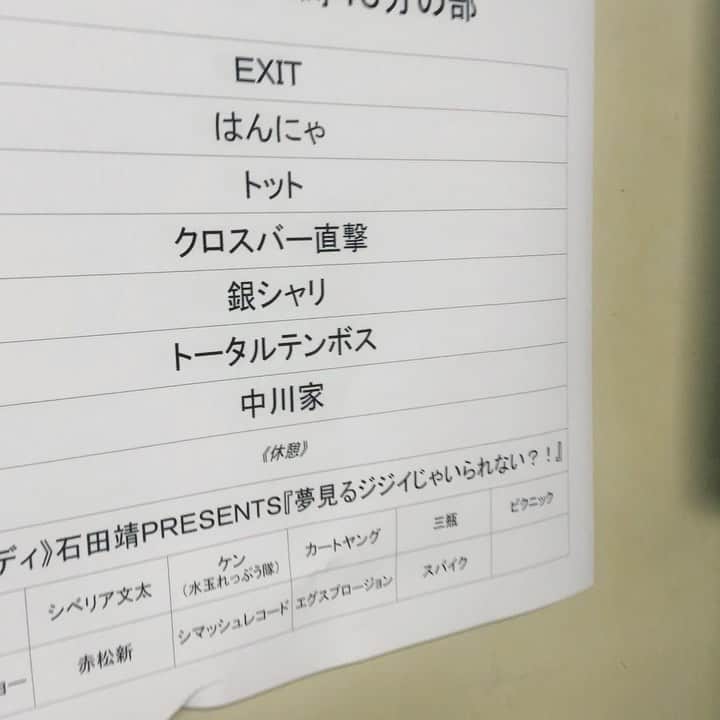 分の部
EXIT
はんにゃ
トット
クロスバー直撃
銀シャリ
トータルテンボス
中川家
《休憩》
ディ》石田靖PRESENTS『夢見るジジイじゃいられない？！』
シベリア文太
ケン
(水玉れっぷう隊)
カートヤング
三瓶
ピクニック
ョー
赤松新
シマッシュレコード
エグスプロージョン
スパイク